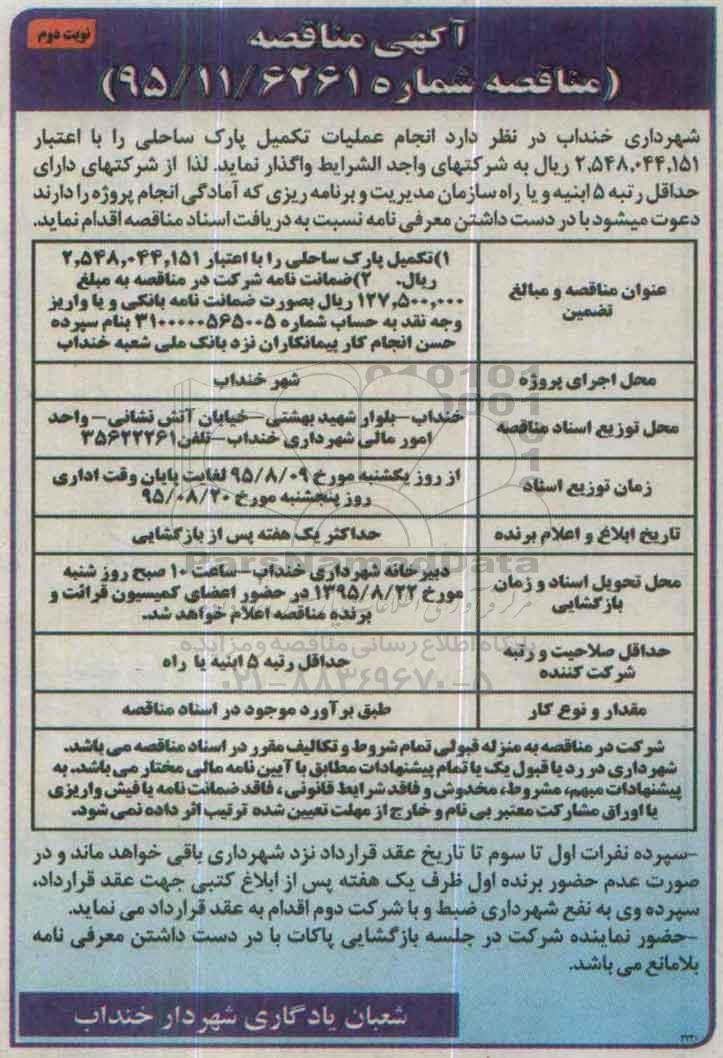 آگهی مناقصه
نوبت دوم
(مناقصه شماره ۹۵/۱۱/۶۲۶۱)
شهرداری خنداب در نظر دارد انجام عملیات تکمیل پارک ساحلی را با اعتبار
۲,۵۴۸,۰۴۴,۱۵۱ ریال به شرکتهای واجد الشرایط واگذار نماید. لذا از شرکتهای دارای
حداقل رتبه ۵ ابنیه و یا راه سازمان مدیریت و برنامه ریزی که آمادگی انجام پروژه را دارند
دعوت میشود با در دست داشتن معرفی نامه نسبت به دریافت اسناد مناقصه اقدام نماید.
عنوان مناقصه و مبالغ
تضمین
۱)تکمیل پارک ساحلی را با اعتبار ۲,۵۴۸,۰۴۴,۱۵۱
ریال. ۲)ضمانت نامه شرکت در مناقصه به مبلغ
۱۲۷,۵۰۰,۰۰۰ ریال بصورت ضمانت نامه بانکی و یا واریز
وجه نقد به حساب شماره ۳۱۰۰۰۰۰۵۶۵۰۰۵ بنام سپرده
حسن انجام کار پیمانکاران نزد بانک ملی شعبه خنداب
محل اجرای پروژه
شهر خنداب
محل توزیع اسناد مناقصه
خنداب-بلوار شهید بهشتی-خیابان آتش نشانی- واحد
امور مالی شهرداری خنداب-تلفن۳۵۶۲۲۲۶۱
زمان توزیع اسناد
از روز یکشنبه مورخ ۹۵/۸/۰۹ لغایت پایان وقت اداری
روز پنجشنبه مورخ ۹۵/۰۸/۲۰
تاریخ ابلاغ و اعلام برنده
حداکثر یک هفته پس از بازگشایی
محل تحویل اسناد و زمان
بازگشایی
دبیرخانه شهرداری خنداب-ساعت ۱۰ صبح روز شنبه
مورخ ۱۳۹۵/۸/۲۲ در حضور اعضای کمیسیون قرائت و
برنده مناقصه اعلام خواهد شد.
حداقل صلاحیت و رتبه
شرکت کننده
حداقل رتبه ۵ ابنیه یا راه
مقدار و نوع کار
طبق برآورد موجود در اسناد مناقصه
شرکت در مناقصه به منزله قبولی تمام شروط و تکالیف مقرر در اسناد مناقصه می باشد.
شهرداری در رد یا قبول یک یا تمام پیشنهادات مطابق با آیین نامه مالی مختار می باشد. به
پیشنهادات مبهم، مشروط، مخدوش و فاقد شرایط قانونی، فاقد ضمانت نامه یا فیش واریزی
یا اوراق مشارکت معتبر بی نام و خارج از مهلت تعیین شده ترتیب اثر داده نمی شود.
-سپرده نفرات اول تا سوم تا تاریخ عقد قرارداد نزد شهرداری باقی خواهد ماند و در
صورت عدم حضور برنده اول ظرف یک هفته پس از ابلاغ کتبی جهت عقد قرارداد،
سپرده وی به نفع شهرداری ضبط و با شرکت دوم اقدام به عقد قرارداد می نماید.
-حضور نماینده شرکت در جلسه بازگشایی پاکات با در دست داشتن معرفی نامه
بلامانع می باشد.
شعبان یادگاری شهردار خنداب
ParsNamadData
پایگاه اطلاع رسانی مناقصه و مزایده
۰۲۱-۸۸۳۴۹۶۷۰-۵